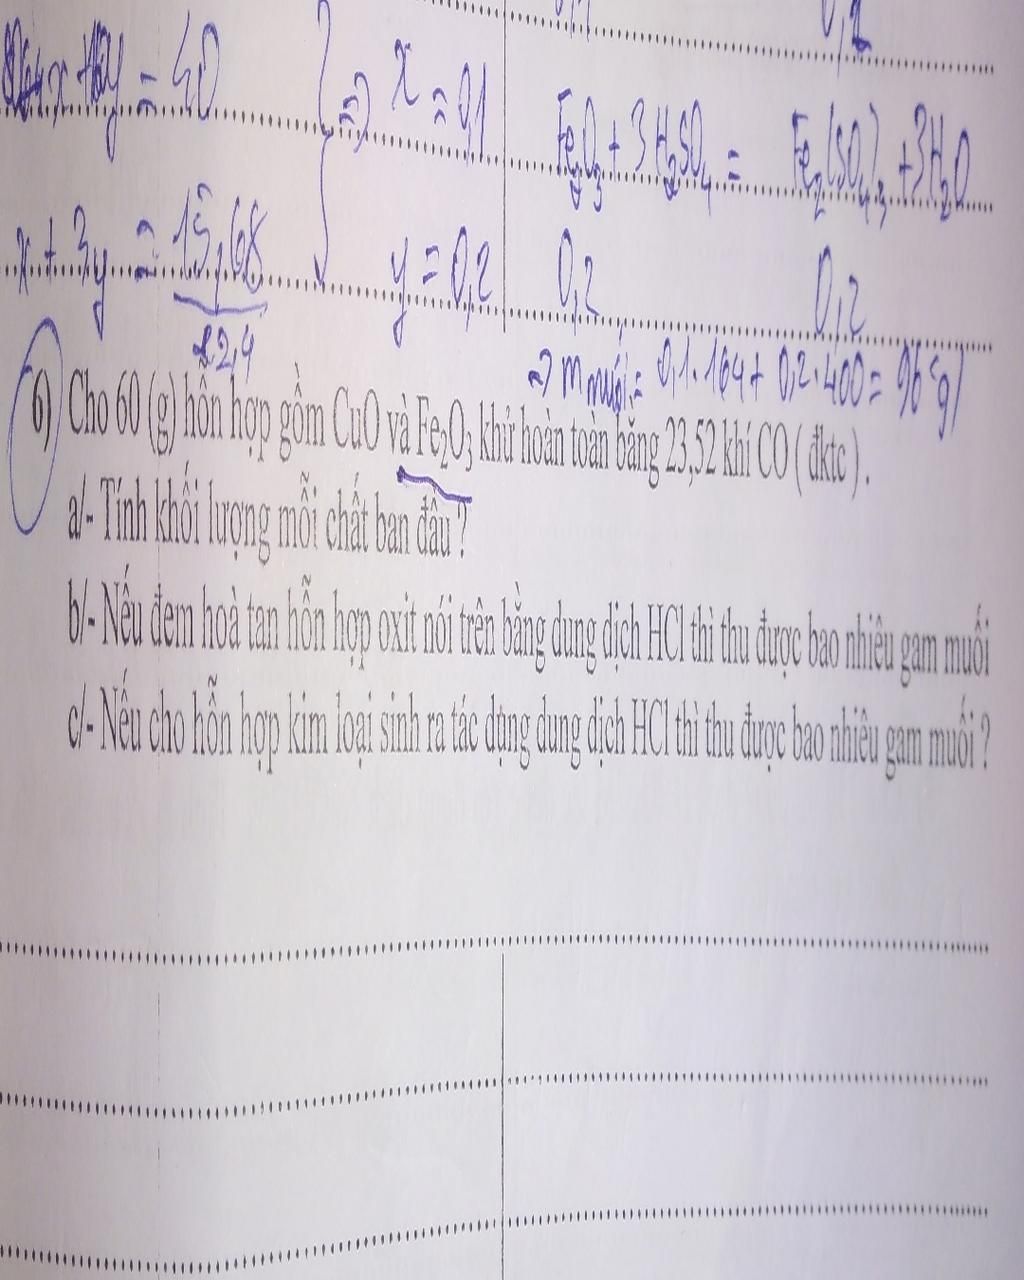 0,2
x + y = 40
=> x = 0,1
Fe2O3 + 3H2SO4 = Fe2(SO4)3 + 3H2O
x + 3y = 15,68
22,4
y = 0,2
0,2 0,2
=> m muối = 0,1.164 + 0,2.400 = 96 (g)
6) Cho 60 (g) hỗn hợp gồm CuO và Fe2O3 khử hoàn toàn bằng 23,52 khí CO ( đktc ) .
a/- Tính khối lượng mỗi chất ban đầu ?
b/- Nếu đem hoà tan hỗn hợp oxit nói trên bằng dung dịch HCl thì thu được bao nhiêu gam muối
c/- Nếu cho hỗn hợp kim loại sinh ra tác dụng dung dịch HCl thì thu được bao nhiêu gam muối ?